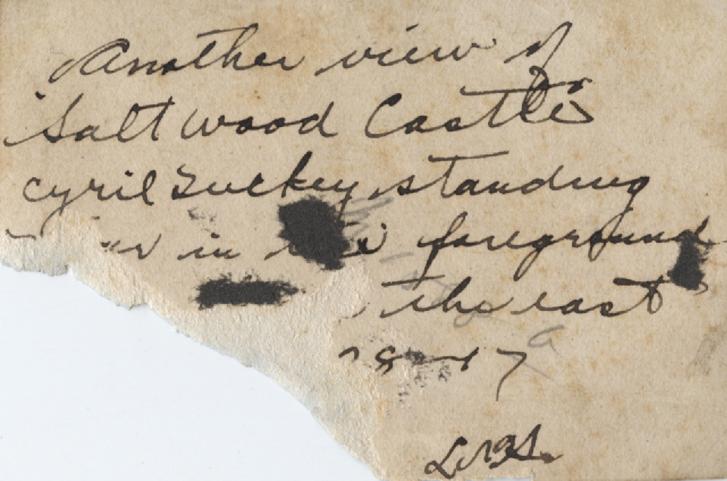 Another view of
Saltwood Castle
Cyril Zuckey standing
in foreground
the east
17